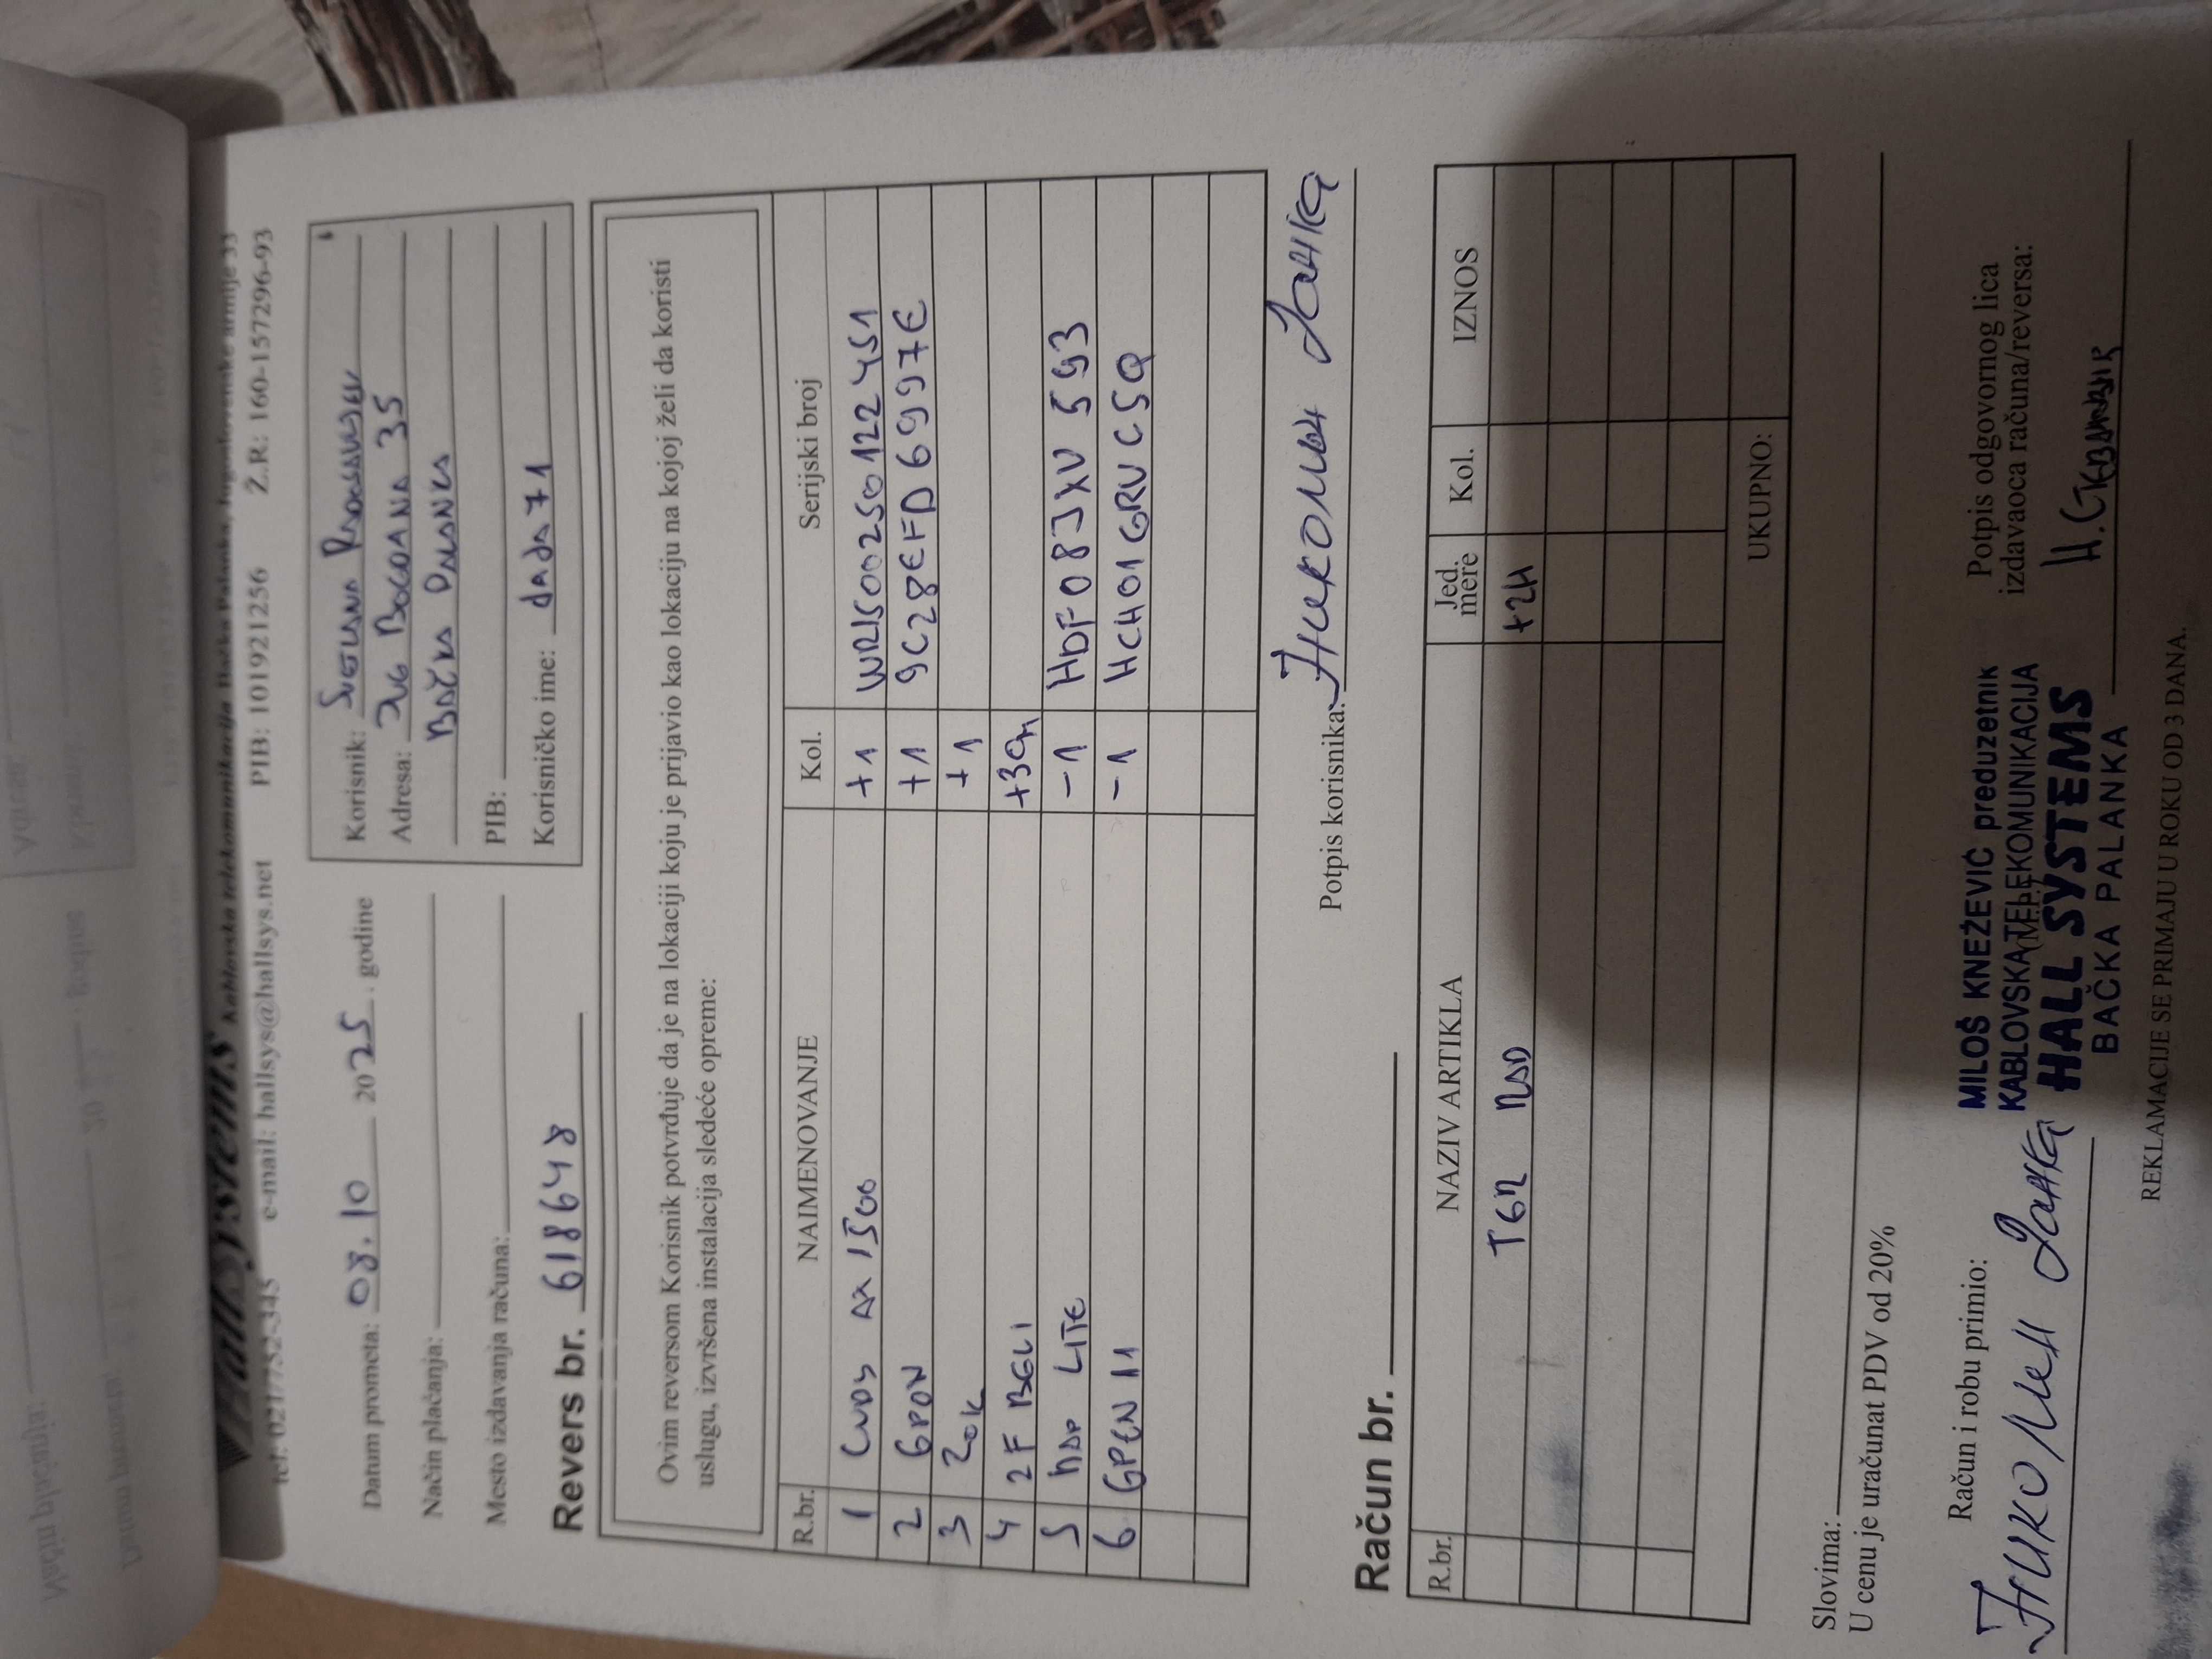 Hall Systems Kablovska telekomunikacija Bačka Palanka, Jugoslovenske armije 33
tel: 021/752-345 e-mail: hallsys@hallsys.net PIB: 101921256 Ž.R.: 160-157296-93
Datum prometa: 08.10 2025. godine
Način plaćanja:
Mesto izdavanja računa:
Revers br. 618648
Korisnik:
Adresa: 35
Bačka Palanka
PIB:
Korisničko ime: dada71
Ovim reversom Korisnik potvrđuje da je na lokaciji koju je prijavio kao lokaciju na kojoj želi da koristi
uslugu, izvršena instalacija sledeće opreme:
R.br. NAIMENOVANJE Kol. Serijski broj
1 CUDY AX 1500 +1 WR1500250122451
2 GPON +1 9C28EFD6997E
3 ZOK +1
4 2F BELI +30m
5 LITE -1 HDF08JXV5593
6 -1 HCH01GRVC5Q
Potpis korisnika:
Račun br.
R.br. NAZIV ARTIKLA Jed. mere Kol. IZNOS
+2H
UKUPNO:
Slovima:
U cenu je uračunat PDV od 20%
Račun i robu primio:
(M.P.)
MILOŠ KNEŽEVIĆ preduzetnik
KABLOVSKA TELEKOMUNIKACIJA
HALL SYSTEMS
BAČKA PALANKA
Potpis odgovornog lica
izdavaoca računa/reversa:
REKLAMACIJE SE PRIMAJU U ROKU OD 3 DANA.